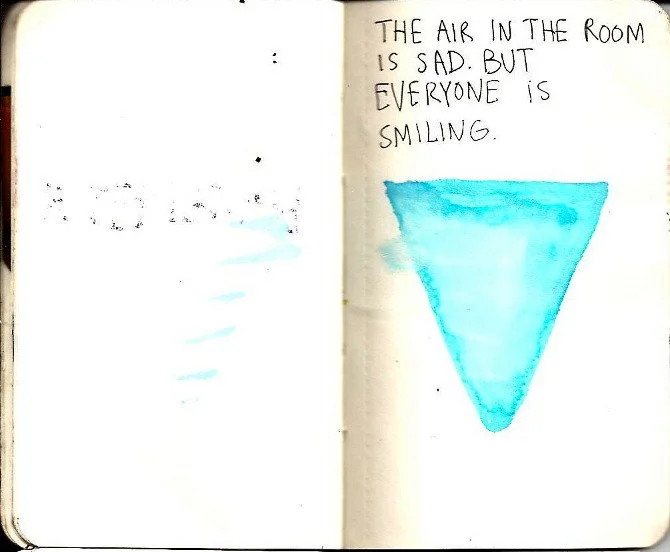 THE AIR IN THE ROOM
IS SAD. BUT
EVERYONE IS
SMILING.